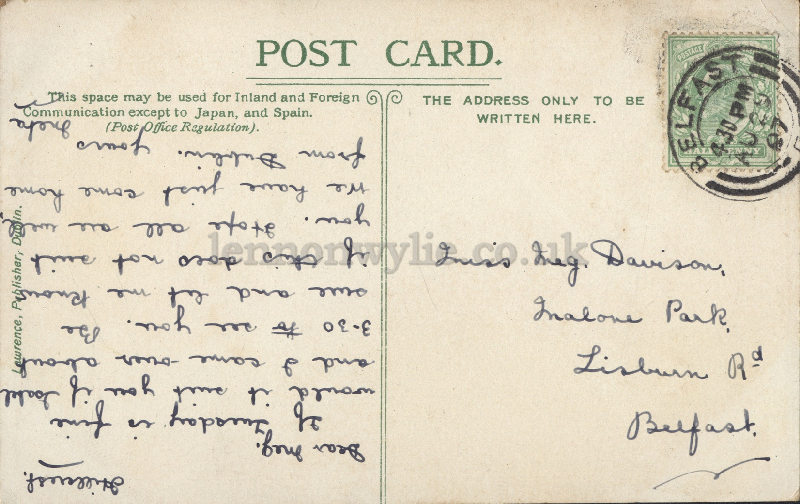 POST CARD.
This space may be used for Inland and Foreign
Communication except to Japan, and Spain.
(Post Office Regulation).
THE ADDRESS ONLY TO BE
WRITTEN HERE.
POSTAGE
BELFAST
4.30 PM
AU 29
07
Miss Meg. Davison,
Malone Park,
Lisburn Rd
Belfast.
Hillcrest.
Dear Meg.
If Tuesday is fine
would it suit you if
and I came over about
3-30 to see you. Be
sure and let me know
if this does not suit
you. Hope all are well,
we have just come home
from Dublin. yours
Lawrence, Publisher, Dublin.
lennonwylie.co.uk